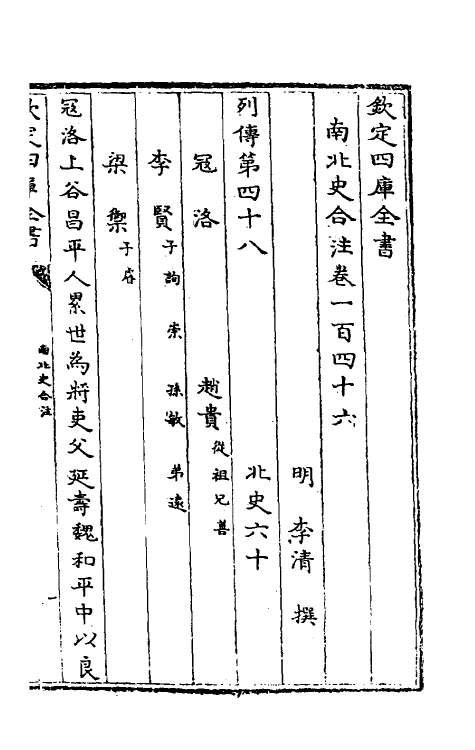 欽定四庫全書
南北史合注卷一百四十六
明 李清 撰
列傳第四十八 北史六十
寇洛 趙貴 從祖兄善
李賢 子詢 崇 孫敏 弟遠
梁禦 子睿
寇洛上谷昌平人累世為將吏父延壽魏和平中以良
欽定四庫全書
南北史合注
一